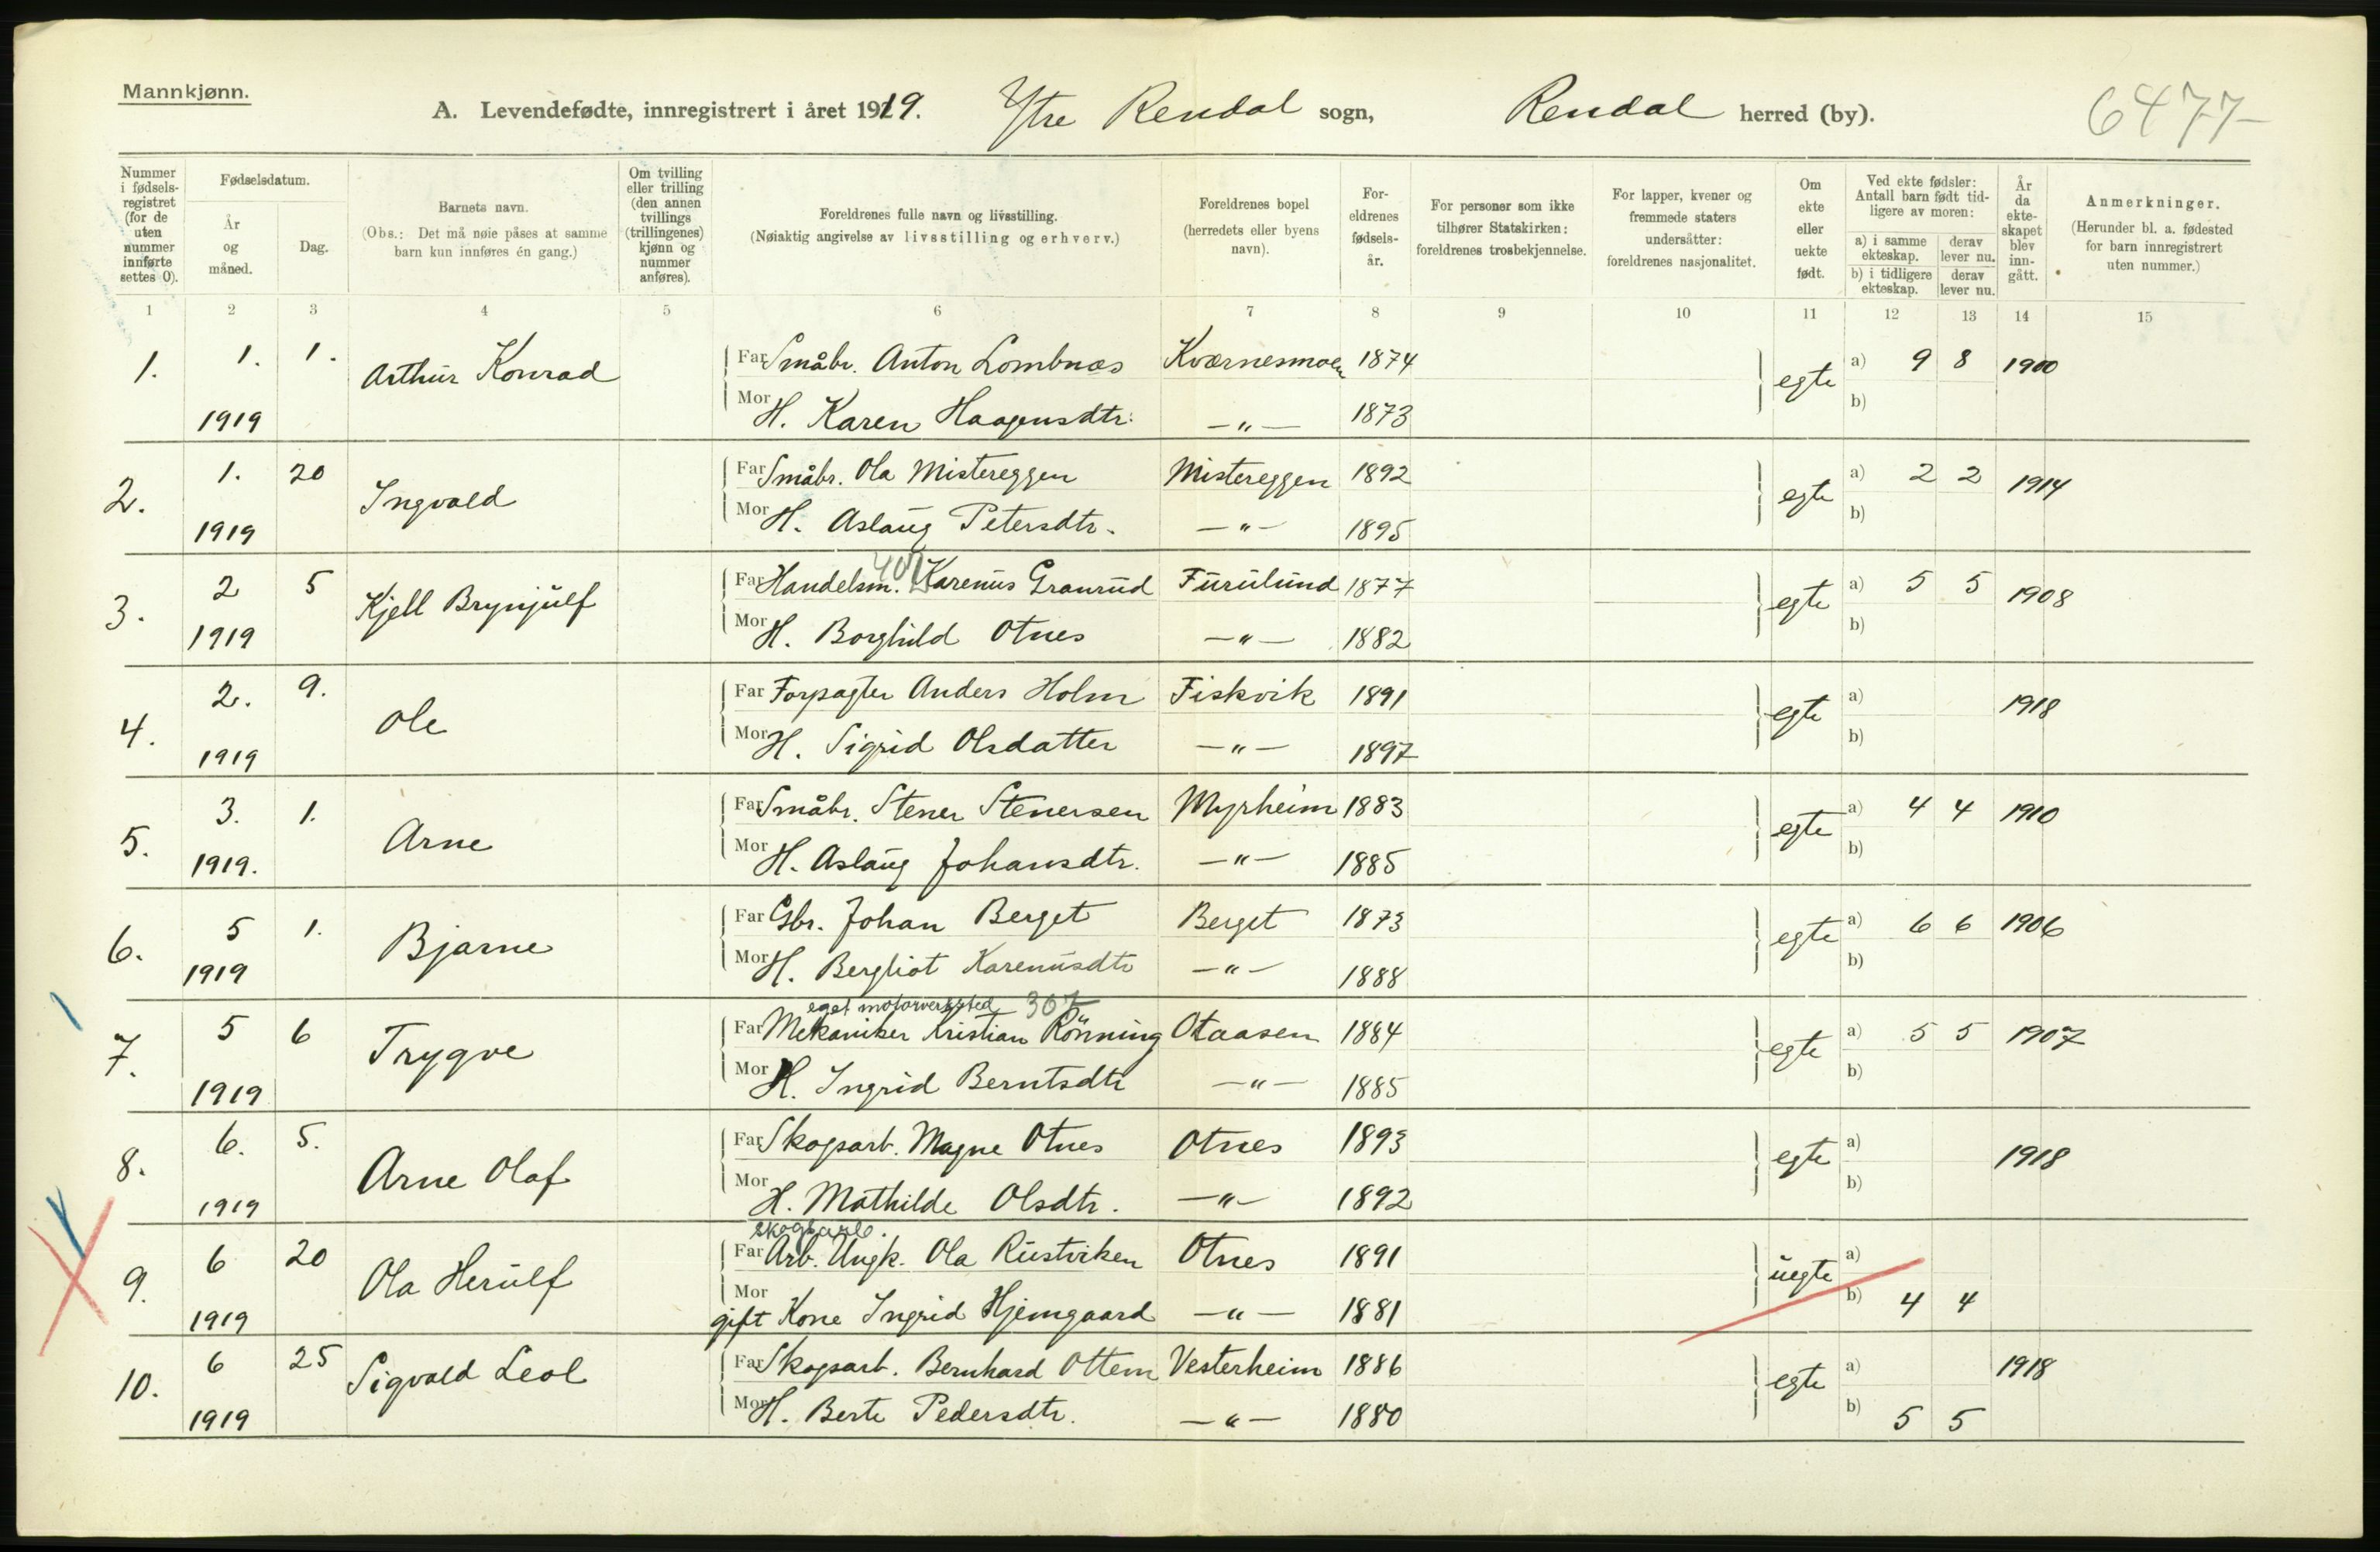 Mannkjønn.
A. Levendefødte, innregistrert i året 1919. Ytre Rendal sogn, Rendal herred (by). 6477
Nummer i fødselsregistret (for de uten nummer innførte settes 0).
Fødselsdatum.
År og måned.
Dag.
Barnets navn.
(Obs.: Det må nøie påses at samme barn kun innføres én gang.)
Om tvilling eller trilling (den annen tvillings (trillingenes) kjønn og nummer anføres).
Foreldrenes fulle navn og livsstilling.
(Nøiaktig angivelse av livsstilling og erhverv.)
Foreldrenes bopel (herredets eller byens navn).
Foreldrenes fødselsår.
For personer som ikke tilhører Statskirken: foreldrenes trosbekjennelse.
For lapper, kvener og fremmede staters undersåtter: foreldrenes nasjonalitet.
Om ekte eller uekte født.
Ved ekte fødsler: Antall barn født tidligere av moren:
a) i samme ekteskap. derav lever nu.
b) i tidligere ekteskap. derav lever nu.
År da ekteskapet blev inngått.
Anmerkninger.
(Herunder bl. a. fødested for barn innregistrert uten nummer.)
1 2 3 4 5 6 7 8 9 10 11 12 13 14 15
1. 1. 1. Arthur Konrad Far Småbr. Anton Lombnæs Kværnesmoen 1874 egte a) 9 8 1900
1919 Mor H. Karen Haagensdtr. —„— 1873 b)
2. 1. 20 Ingvald Far Småbr. Ola Mistereggen Mistereggen 1892 egte a) 2 2 1914
1919 Mor H. Aslaug Petersdtr. —„— 1895 b)
407
3. 2 5 Kjell Brynjulf Far Handelsm. Karenus Granrud Furulund 1877 egte a) 5 5 1908
1919 Mor H. Borghild Otnes —„— 1882 b)
4. 2. 9. Ole Far Forpagter Anders Holm Fiskvik 1891 egte a) 1918
1919 Mor H. Sigrid Olsdatter —„— 1897 b)
5. 3. 1. Arne Far Småbr. Stener Stenersen Myrheim 1883 egte a) 4 4 1910
1919. Mor H. Aslaug Johansdtr. —„— 1885 b)
6. 5 1. Bjarne Far Gbr. Johan Berget Berget 1873 egte a) 6 6 1906
1919 Mor H. Bergliot Karenusdtr —„— 1888 b)
eget motorverksted 307
7. 5 6 Trygve Far Mekaniker Kristian Rönning Otaasen 1884 egte a) 5 5 1907
1919 Mor H. Ingrid Berntsdtr —„— 1885 b)
8. 6. 5. Arne Olaf Far Skogsarb. Magne Otnes Otnes 1893 egte a) 1918
1919 Mor H. Mathilde Olsdtr. —„— 1892 b)
skogsarb.
9. 6 20 Ola Herulf Far Arb. Ungk. Ola Rustviken Otnes 1891 uegte a)
1919 Mor gift Kone Ingrid Hjemgaard —„— 1881 b) 4 4
10. 6 25 Sigvald Leol Far Skogsarb. Bernhard Ottem Vesterheim 1886 egte a) 1918
1919 Mor H. Berte Pedersdtr. —„— 1880 b) 5 5